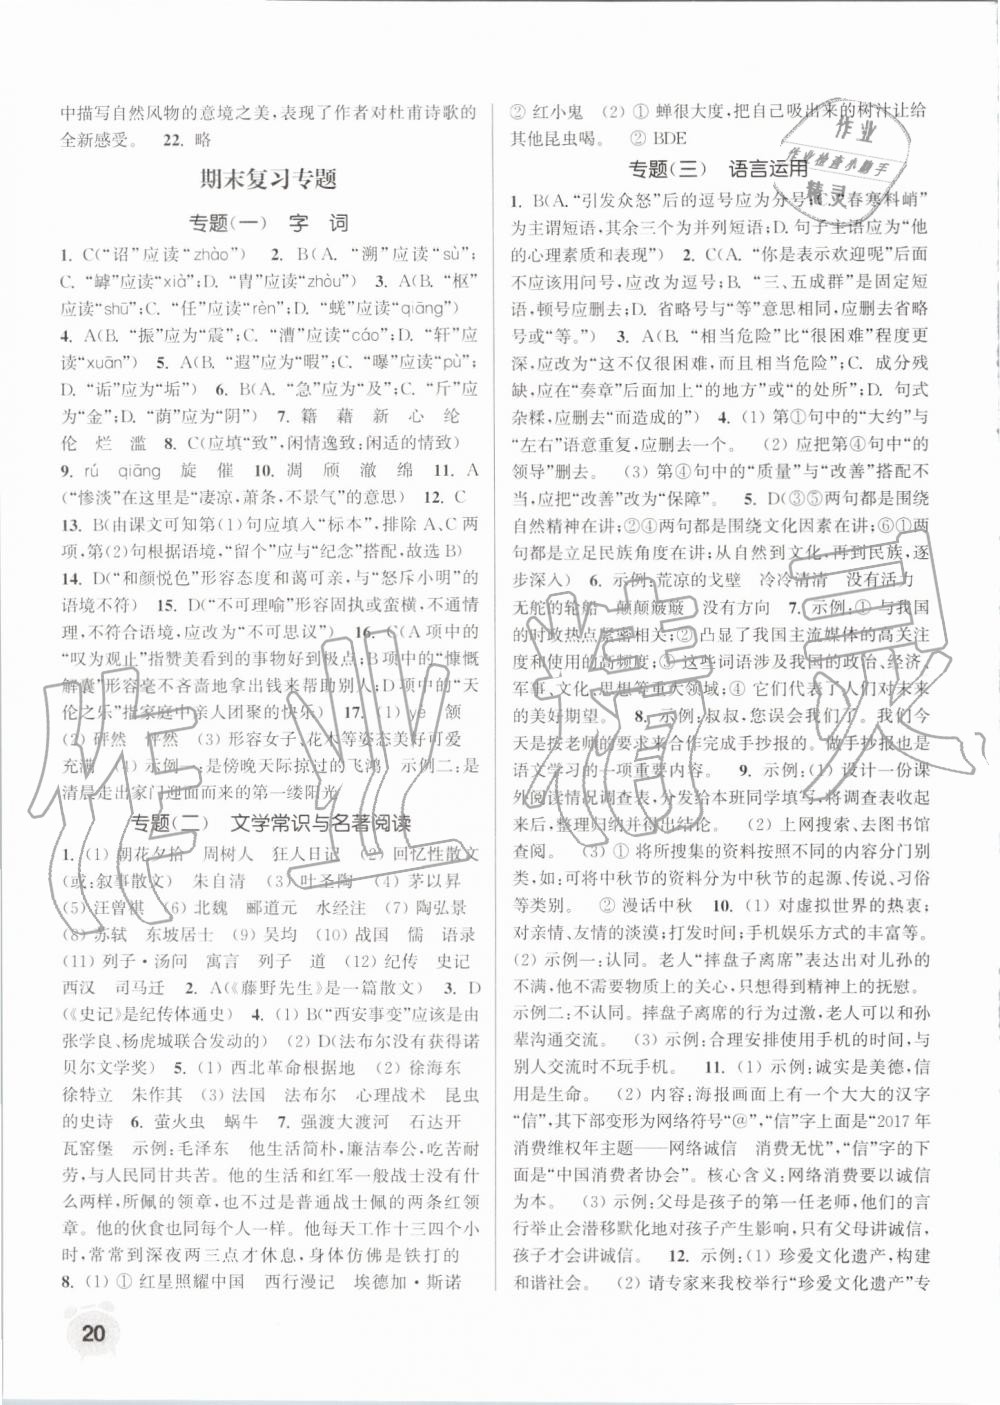 中描写自然风物的意境之美,表现了作者对杜甫诗歌的
全新感受。 22. 略
期末复习专题
专题(一) 字 词
1. C(“诏”应读“zhào”) 2. B(A. “溯”应读“sù”;
C. “罅”应读“xià”;D. “胄”应读“zhòu”) 3. A(B. “枢”
应读“shū”;C. “任”应读“rèn”;D. “蜣”应读“qiāng”)
4. A(B. “振”应为“震”;C. “漕”应读“cáo”;D. “轩”应
读“xuān”) 5. A(B. “遐”应为“暇”;C. “曝”应读“pù”;
D. “诟”应为“垢”) 6. B(A. “急”应为“及”;C. “斤”应
为“金”;D. “荫”应为“阴”) 7. 籍 藉 新 心 纶
伦 烂 滥 8. C(应填“致”,闲情逸致:闲适的情致)
9. rú qiāng 旋 催 10. 凋 颀 澈 绵 11. A
(“惨淡”在这里是“凄凉,萧条,不景气”的意思) 12. C
13. B(由课文可知第(1)句应填入“标本”,排除 A、C 两
项,第(2)句根据语境,“留个”应与“纪念”搭配,故选 B)
14. D(“和颜悦色”形容态度和蔼可亲,与“怒斥小明”的
语境不符) 15. D(“不可理喻”形容固执或蛮横,不通情
理,不符合语境,应改为“不可思议”) 16. C(A 项的
“叹为观止”指赞美看到的事物好到极点;B 项中的“慷慨
解囊”形容毫不吝啬地拿出钱来帮助别人;D 项中的“天
伦之乐”指家庭中亲人团聚的快乐) 17. (1) yè 颔
(2) 砰然 怦然 (3) 形容女子、花木等姿态美好可爱
充满 (4) 示例一:是傍晚天际掠过的飞鸿 示例二:是
清晨走出家门迎面而来的第一缕阳光
专题(二) 文学常识与名著阅读
1. (1) 朝花夕拾 周树人 狂人日记 (2) 回忆性散文
(或:叙事散文) 朱自清 (3) 叶圣陶 (4) 茅以昇
(5) 汪曾祺 (6) 北魏 郦道元 水经注 (7) 陶弘景
(8) 苏轼 东坡居士 (9) 吴均 (10) 战国 儒 语录
(11) 列子·汤问 寓言 列子 道 (12) 纪传 史记
西汉 司马迁 2. A(《藤野先生》是一篇散文) 3. D
(《史记》是纪传体通史) 4. (1) B(“西安事变”应该是由
张学良、杨虎城联合发动的) (2) D(法布尔没有获得诺
贝尔文学奖) 5. (1) 西北革命根据地 (2) 徐海东
徐特立 朱作其 (3) 法国 法布尔 心理战术 昆虫
的史诗 6. 萤火虫 蜗牛 7. 强渡大渡河 石达开
瓦窑堡 示例:毛泽东 他生活简朴,廉洁奉公,吃苦耐
劳,与人民同甘共苦。他的生活和红军一般战士没有什
么两样,所佩的领章,也不过是普通战士佩的两条红领
章。他的伙食也同每个人一样。他每天工作十三四个小
时,常常到深夜两三点才休息,身体仿佛是铁打的
8. (1) ① 红星照耀中国 西行漫记 埃德加·斯诺
② 红小鬼 (2) ① 蝉很大度,把自己吸出来的树汁让给
其他昆虫喝。 ② BDE
专题(三) 语言运用
1. B(A. “引发众怒”后的逗号应为分号;C. “春寒料峭”
为主谓短语,其余三个为并列短语;D. 句子主语应为“他
的心理素质和表现”) 2. C(A. “你是表示欢迎呢”后面
不应该用问号,应改为逗号;B. “三、五成群”是固定短
语,顿号应删去;D. 省略号与“等”意思相同,应删去省略
号或“等。”) 3. A(B. “相当危险”比“很困难”程度更
深,应改为“这不仅很困难,而且相当危险”;C. 成分残
缺,应在“奏章”后面加上“的地方”或“的处所”;D. 句式
杂糅,应删去“而造成的”) 4. (1) 第①句中的“大约”与
“左右”语意重复,应删去一个。 (2) 应把第④句中的“的
领导”删去。 (3) 第④句中的“质量”与“改善”搭配不
当,应把“改善”改为“保障”。 5. D(③⑤两句都是围绕
自然精神在讲;②④两句都是围绕文化因素在讲;⑥①两
句都是立足民族角度在讲,从自然,到文化,再到民族,逐
步深入) 6. 示例:荒凉的戈壁 冷冷清清 没有活力
无舵的轮船 颠颠簸簸 没有方向 7. 示例:① 与我国
的时政热点紧密相关;② 凸显了我国主流媒体的高关注
度和使用的高频度;③ 这些词语涉及我国的政治、经济、
军事、文化、思想等重大领域;④ 它们代表了人们对未来
的美好期望。 8. 示例:叔叔,您误会我们了。我们今
天是按老师的要求来合作完成手抄报的。做手抄报也是
语文学习的一项重要内容。 9. 示例:(1) 设计一份课
外阅读情况调查表,分发给本班同学填写,将调查表收起
来后,整理归纳并得出结论。 (2) 上网搜索、去图书馆
查阅。 (3) ① 将所搜集的资料按照不同的内容分门别
类,如:可将中秋节的资料分为中秋节的起源、传说、习俗
等类别。 ② 漫话中秋 10. (1) 对虚拟世界的热衷;
对亲情、友情的淡漠;打发时间;手机娱乐方式的丰富等。
(2) 示例一:认同。老人“摔盘子离席”表达出对儿孙的
不满,他不需要物质上的关心,只想得到精神上的抚慰。
示例二:不认同。摔盘子离席的行为过激,老人可以和孙
辈沟通交流。 (3) 示例:合理安排使用手机的时间,与
别人交流时不玩手机。 11. (1) 示例:诚实是美德,信
用是生命。 (2) 内容:海报画面上有一个大大的汉字
“信”,其下部变形为网络符号“@”,“信”字上面是“2017 年
消费维权年主题——网络诚信 消费无忧”,“信”字的下
面是“中国消费者协会”。 核心含义:网络消费要以诚信
为本。 (3) 示例:父母是孩子的第一任老师,他们的言
行举止会潜移默化地对孩子产生影响,只有父母讲诚信,
孩子才会讲诚信。 12. 示例:(1) 珍爱文化遗产,构建
和谐社会。 (2) 请专家来我校举行“珍爱文化遗产”专
20
作业
作业检查小助手
精灵
作业精灵